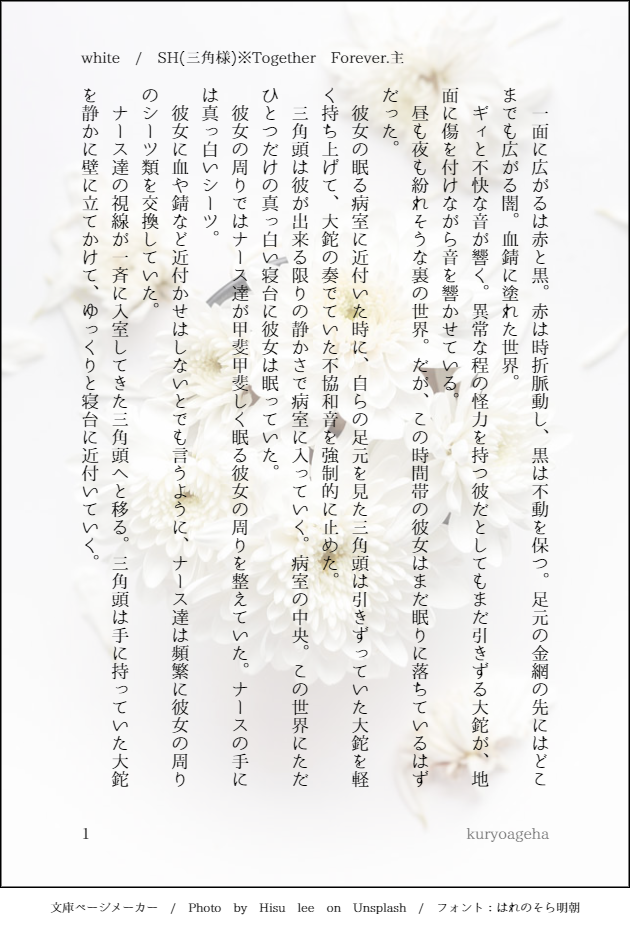 white / SH(三角様)※Together Forever.主
　一面に広がるは赤と黒。赤は時折脈動し、黒は不動を保つ。足元の金網の先にはどこ
までも広がる闇。血錆に塗れた世界。
　ギィと不快な音が響く。異常な程の怪力を持つ彼だとしてもまだ引きずる大鉈が、地
面に傷を付けながら音を響かせている。
　昼も夜も紛れそうな裏の世界。だが、この時間帯の彼女はまだ眠りに落ちているはず
だった。
　彼女の眠る病室に近付いた時に、自らの足元を見た三角頭は引きずっていた大鉈を軽
く持ち上げて、大鉈の奏でていた不協和音を強制的に止めた。
　三角頭は彼が出来る限りの静かさで病室に入っていく。病室の中央。この世界にただ
ひとつだけの真っ白い寝台に彼女は眠っていた。
　彼女の周りではナース達が甲斐甲斐しく眠る彼女の周りを整えていた。ナースの手に
は真っ白いシーツ。
　彼女に血や錆など近付かせはしないとでも言うように、ナース達は頻繁に彼女の周り
のシーツ類を交換していた。
　ナース達の視線が一斉に入室してきた三角頭へと移る。三角頭は手に持っていた大鉈
を静かに壁に立てかけて、ゆっくりと寝台に近付いていく。
1
kuryoageha
文庫ページメーカー / Photo by Hisu lee on Unsplash / フォント：はれのそら明朝